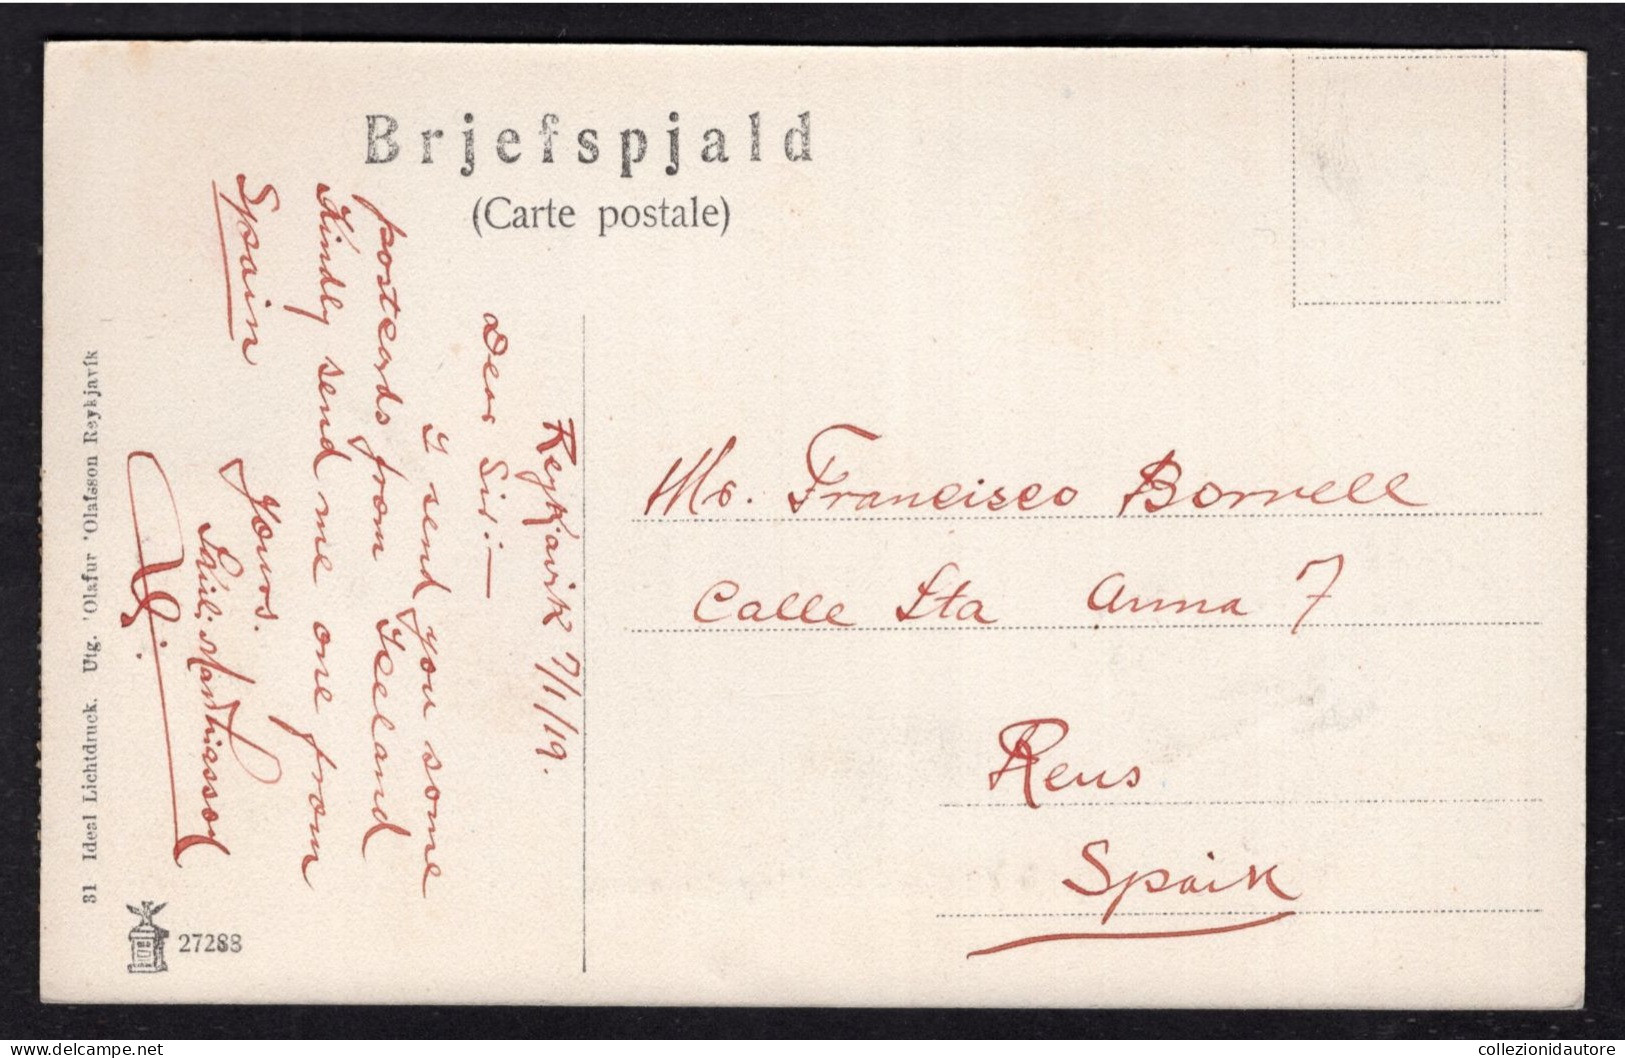 Brjefspjald
(Carte postale)
Reykjavik 7/1/19.
Dear Sir:—
I send you some
postcards from Iceland
Kindly send me one from
Spain
Yours.
Matthiasson
Mr. Francisco Borrell
Calle Sta Anna 7
Reus
Spain
31 Ideal Lichtdruck. Utg. 'Olafur 'Olafsson Reykjavik
27288
delcampe.net
collezionidautore